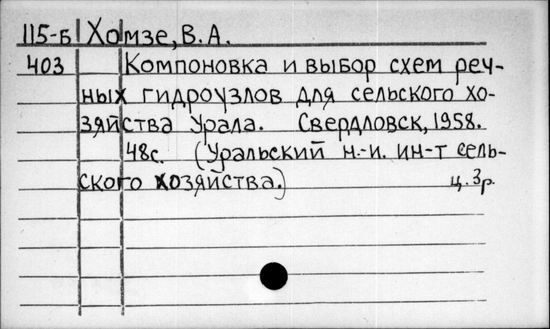 115-Б Хомзе, В.А.
403 Компоновка и выбор схем реч-
ных гидроузлов для сельского хо-
зяйства Урала. Свердловск, 1958.
48с. (Уральский н.-и. ин-т сель-
ского хозяйства.) ц. 3р.